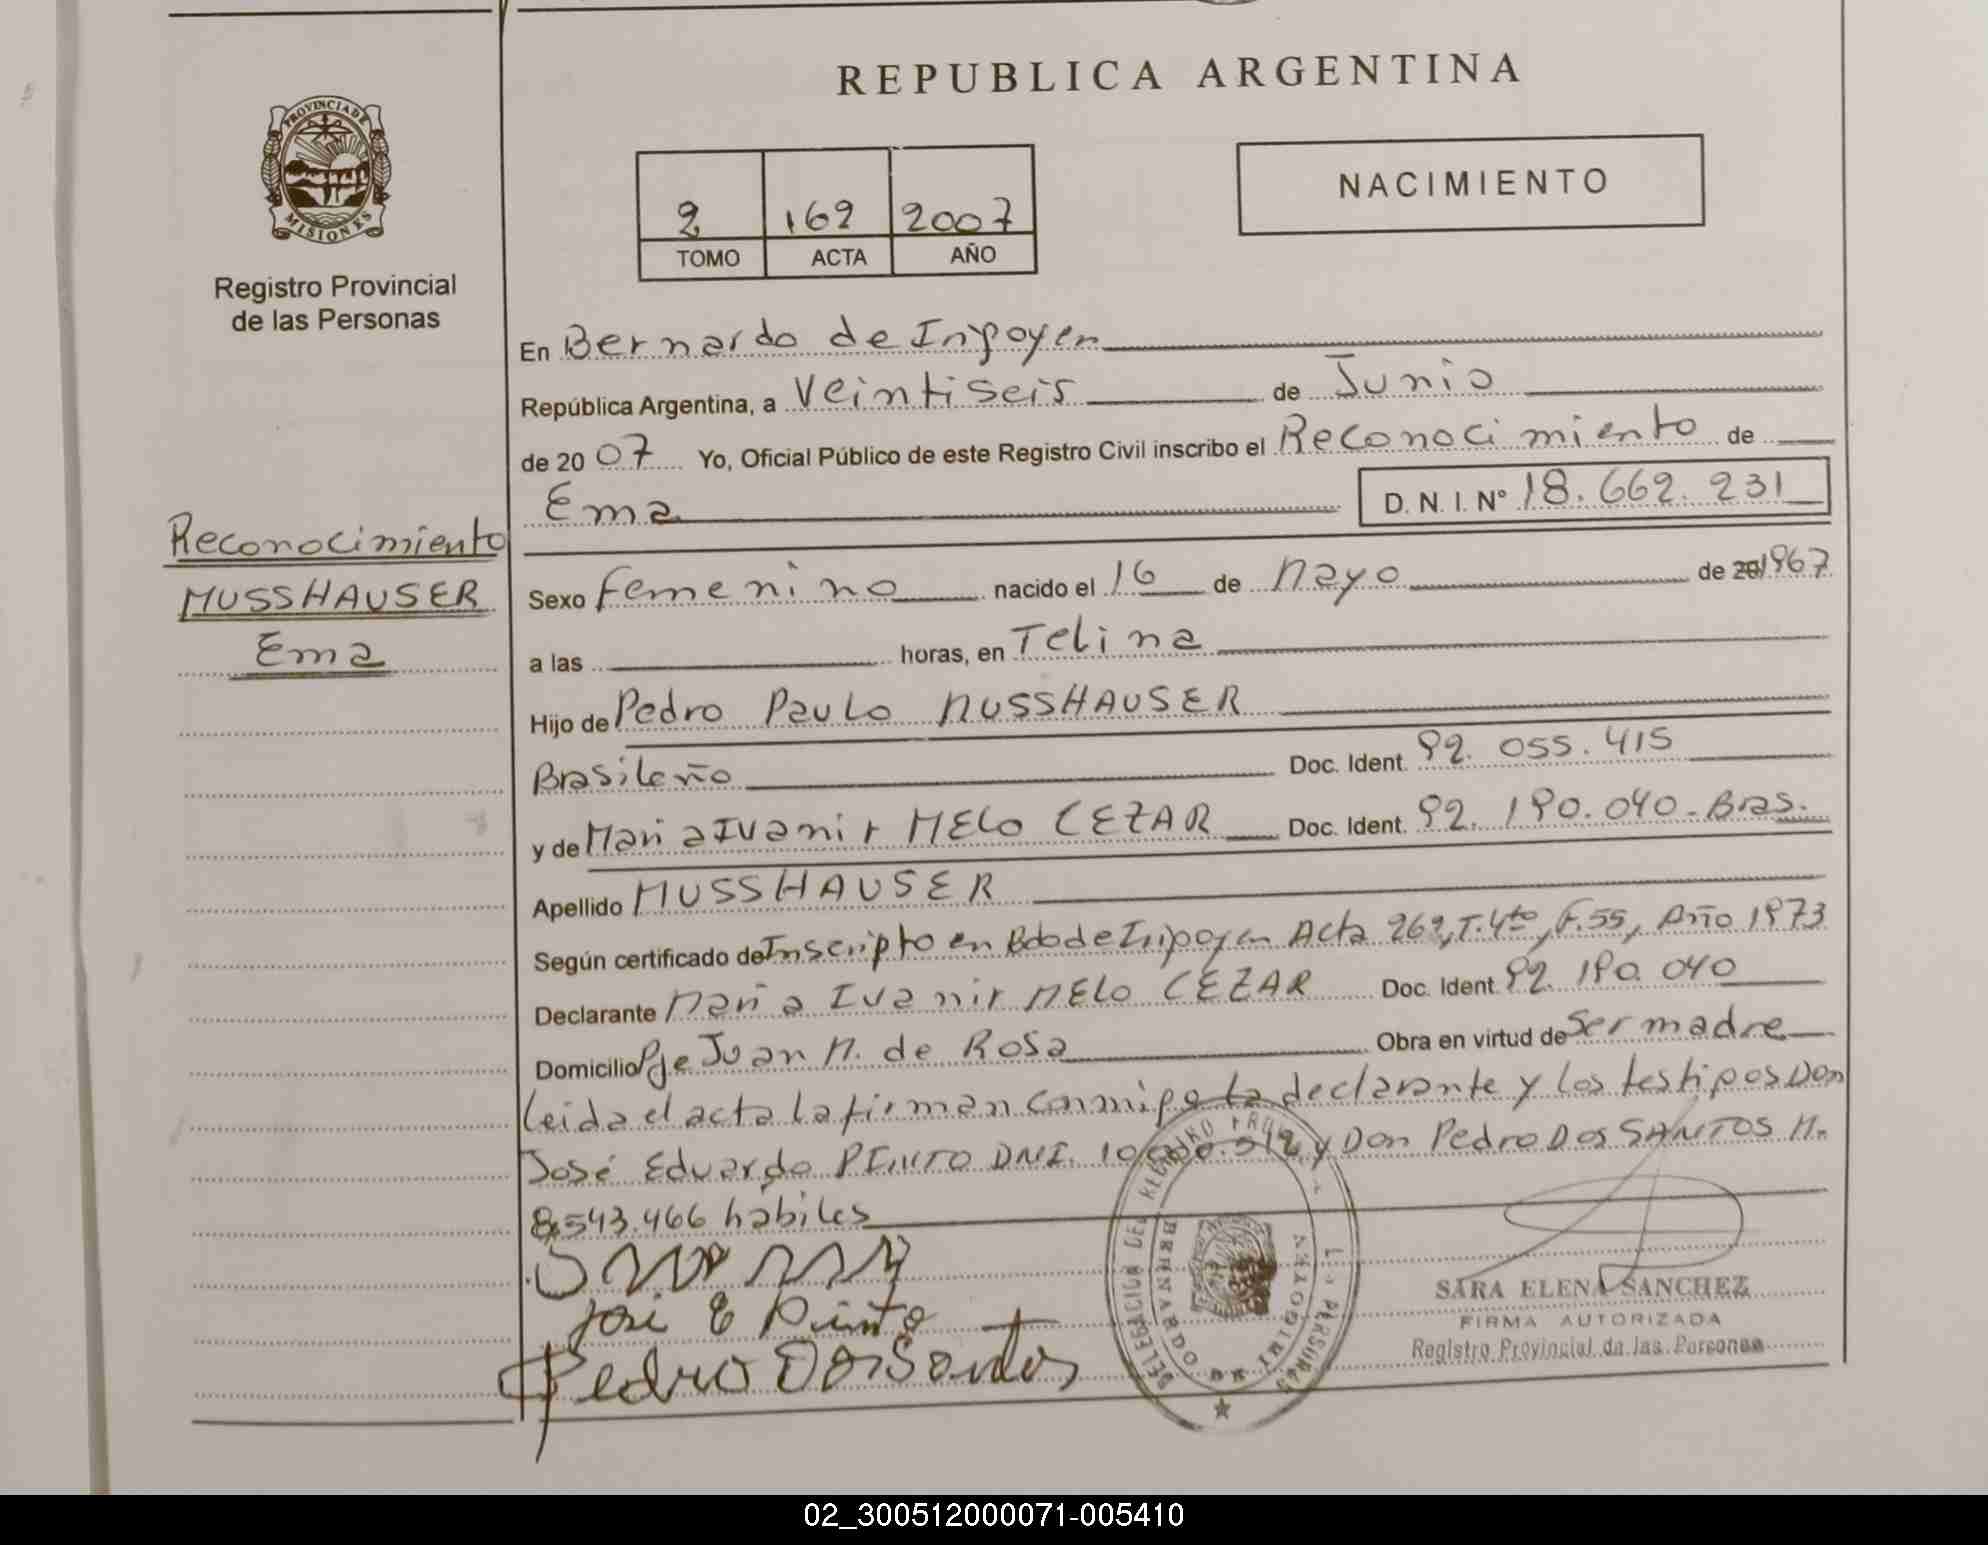 REPUBLICA ARGENTINA
PROVINCIA DE MISIONES
Registro Provincial
de las Personas
2 162 2007
TOMO ACTA AÑO
NACIMIENTO
En Bernardo de Irigoyen
República Argentina, a Veintiseis de Junio
de 2007 Yo, Oficial Público de este Registro Civil inscribo el Reconocimiento de
Ema D. N. I. N° 18.662.231
Reconocimiento
MUSSHAUSER
Ema
Sexo Femenino nacido el 16 de Mayo de 20 1967
a las horas, en Telina
Hijo de Pedro Paulo MUSSHAUSER
Brasileño Doc. Ident. 92.055.415
y de Maria Ivanir MELO CEZAR Doc. Ident. 92.190.040-Bras.
Apellido MUSSHAUSER
Según certificado de Inscripto en Bdo de Irigoyen Acta 262, T.4to, F.55, Año 1973
Declarante Maria Ivanir MELO CEZAR Doc. Ident. 92.190.040
Domicilio Pje Juan M. de Rosa Obra en virtud de Ser madre
Leida el acta la firman conmigo la declarante y los testigos Don
José Eduardo PINTO DNI. y Don Pedro Dos SANTOS M.
8.543.466 hábiles
José E Pinto
Pedro Dos Santos
DELEGACION DEL REGISTRO PROV. DE LAS PERSONAS
BERNARDO DE IRIGOYEN
SARA ELENA SANCHEZ
FIRMA AUTORIZADA
Registro Provincial de las Personas
02_300512000071-005410